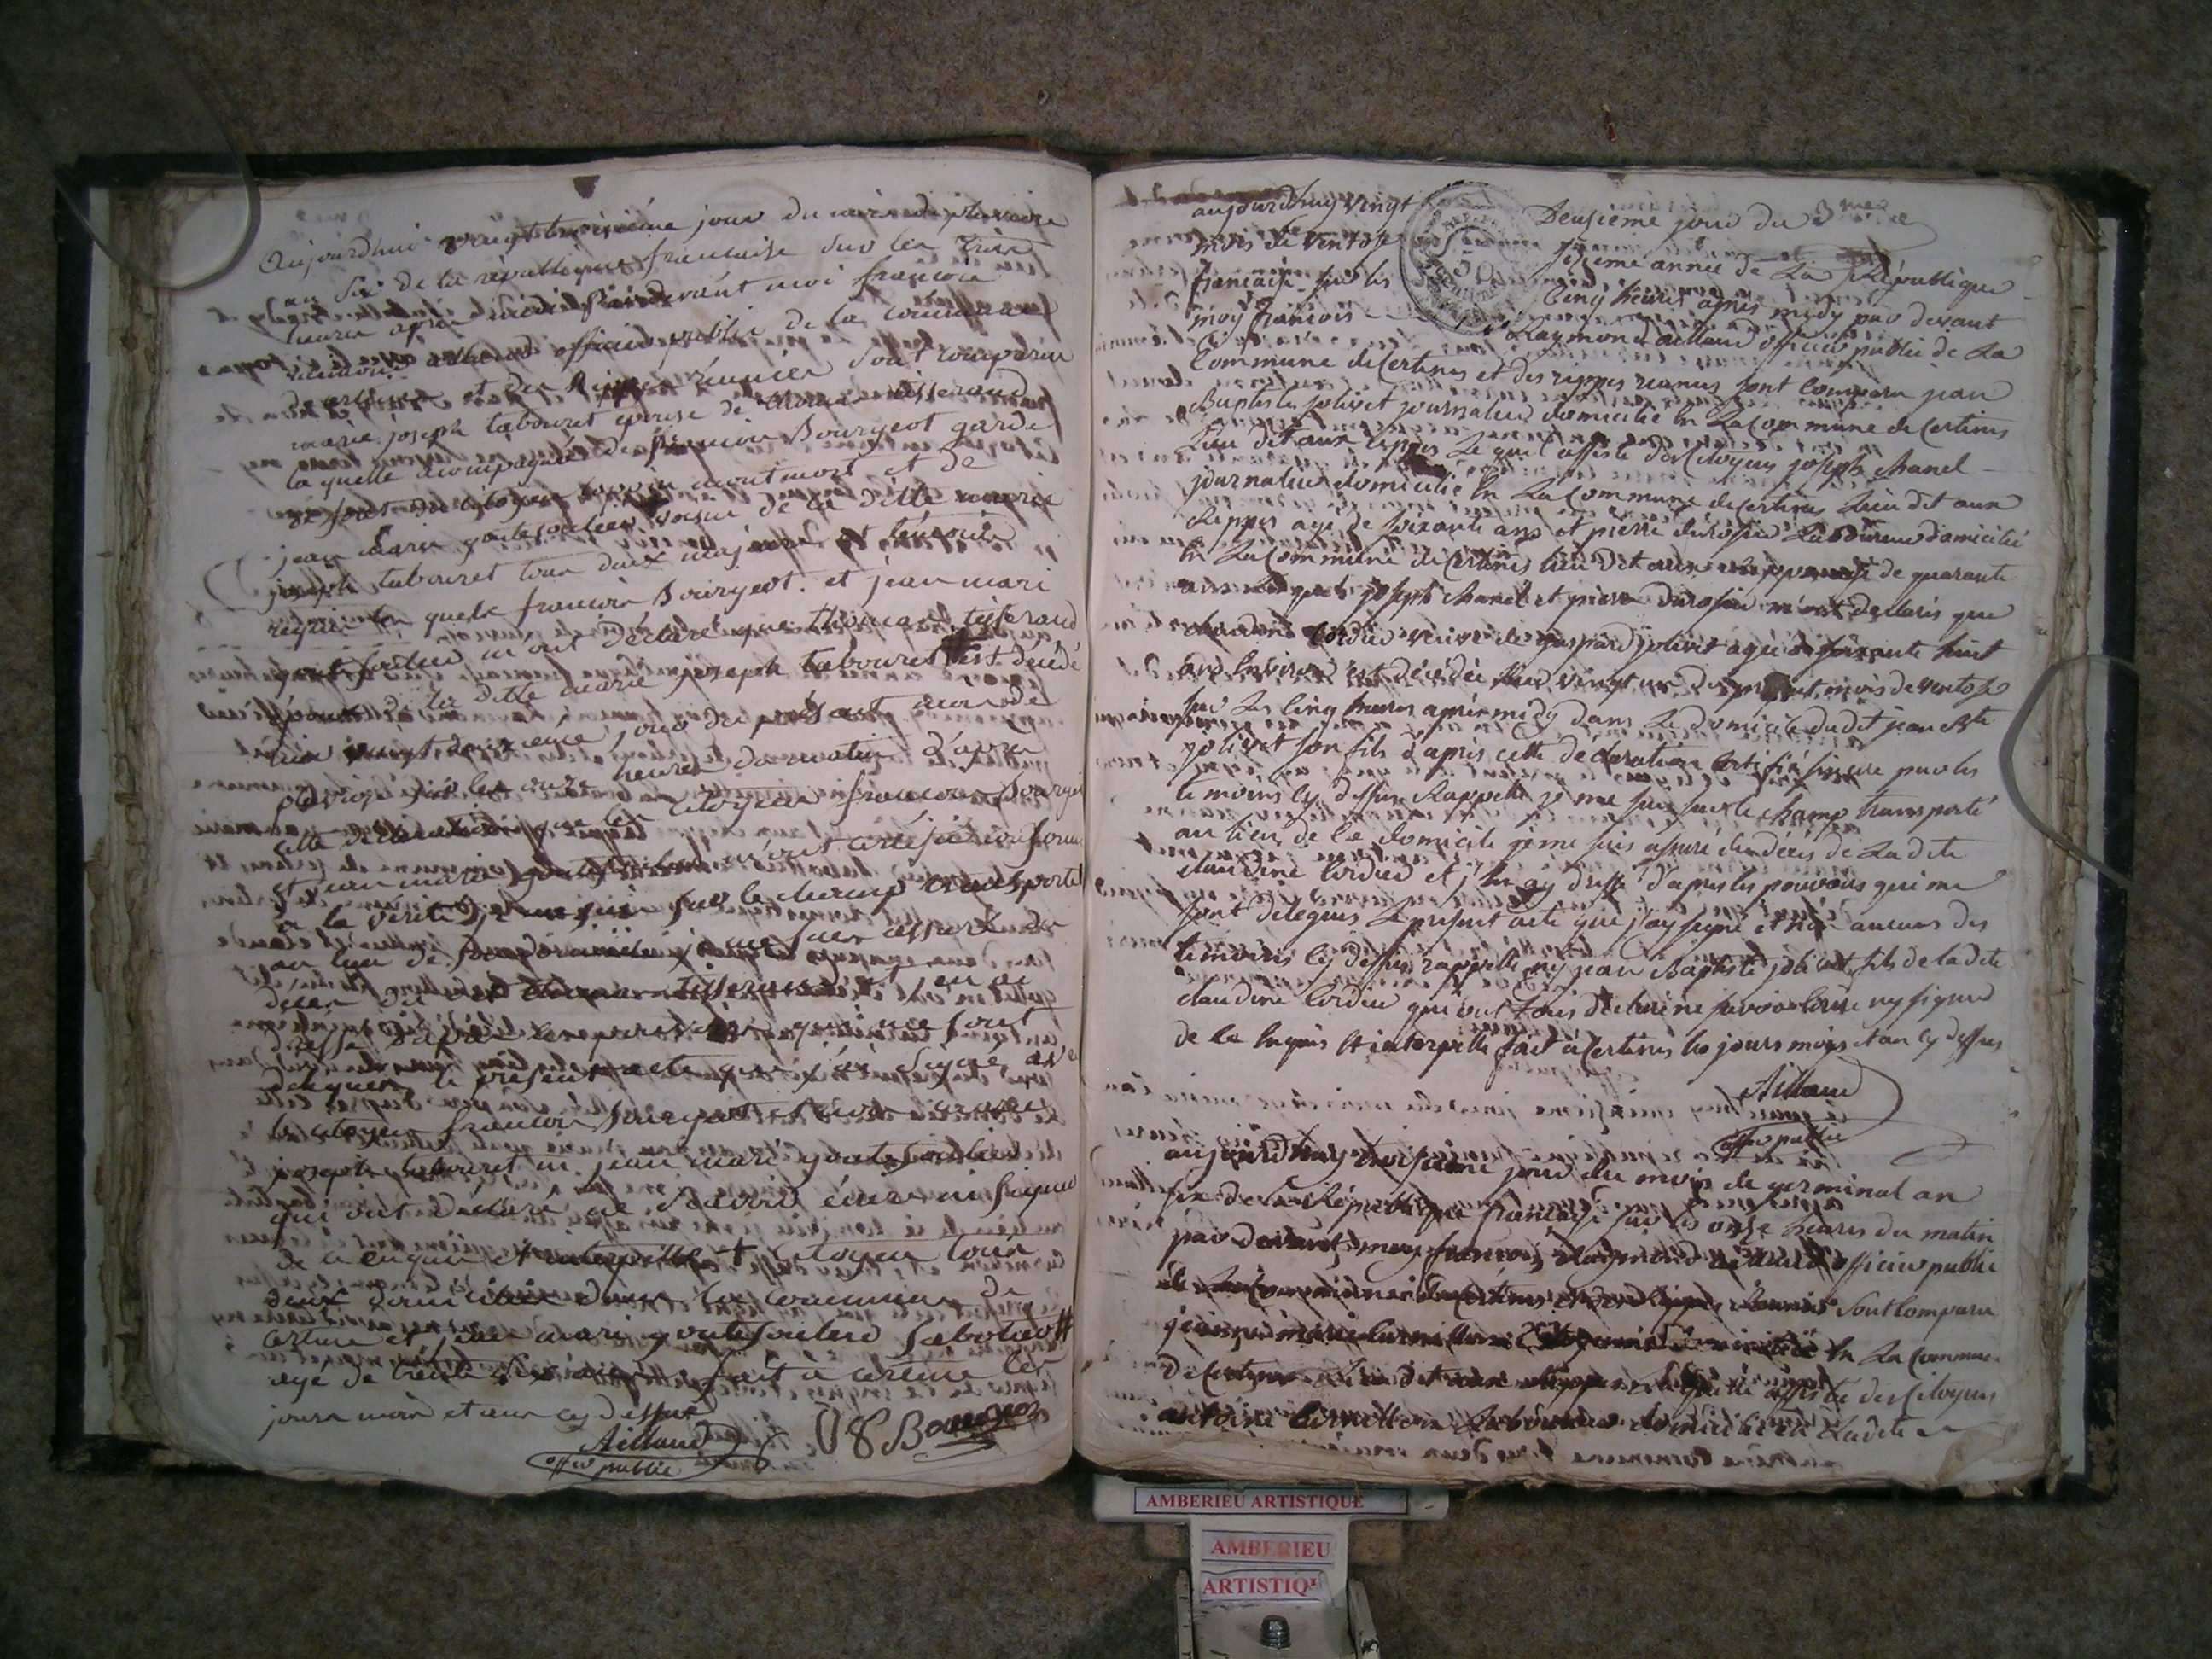 Aujourdhui vingt troisième jour du mois de pluviose
an six de la république francaise sur les trois
heures après midi pardevant moi francois
raimond aillaud officier public de la commune
de certines et des Rippes réunies sont comparus
marie joseph tabouret épouse de thomas tisserand
la quelle acompagnée de francois Bourgeot garde
jean marie goutesoulier voisin de la ditte marie
joseph tabouret tous deux majeurs et témoins
requis les quels francois Bourgeot et jean mari
goutesoulier m'ont déclaré que thomas tisserand
de la ditte marie joseph tabouret est décédé
hier vingt deuxieme jour du présent mois de
pluviose sur les onze heures du matin d'après
cette déclaration que les citoyens francois Bourgeot
et jean marie goutesoulier m'ont certifié conforme
a la vérité je me suis sur le champ transporté
au lieu de ce domicile je me suis assuré du
décès du dit thomas tisserand j'en ai
dressé d'après les pouvoirs qui me sont
délégués le présent acte que j'ai signé avec
le citoyen francois Bourgeot et non marie
joseph tabouret ni jean mari goutesoulier
qui ont déclaré ne savoir écrire ni signer
de ce enquis et interpellé + citoyen tous
deux domiciliés dans la commune de
certine et jean mari goutesoulier sabotier #
agé de trente six ans fait à certine les
jours mois et an cy dessus
Aillaud
offier public
Bourgeot
aujourdhuy vingt Deusieme jour du
mois de ventose sixieme année de La République
francaise sur les Cinq heures apres midy par devant
moy francois Raymond aillaud officier public de La
Commune de Certines et des rippes reunies sont Comparu jean
Baptiste jolivet journalier domicilié En La Commune de Certines
Lieu dit aux rippes Le quel assisté des Citoyens joseph chanel
journalier domicilié En La Commune de Certines Lieu dit aux
Rippes agé de soixante ans et pierre durosier Laboureur domicilié
En La Commune de Certines lieu dit aux rippes agé de quarante
ans Lesquels joseph chanel et pierre durosier m'ont declarés que
claudine Cordier veuve de gaspard jolivet agée de soixante huit
ans Environ est décédée hier vingt un du present mois de ventose
sur Les Cinq heures après midy dans Le domicile dudit jean Bte
jolivet son fils d'après cette declaration Certifié sincere par les
temoins Cy dessus Rappellé je me suis sur le champ transporté
au lieu de Ce domicile je me suis assuré du décès de Ladite
claudine Cordier et j'En ay dressé d'apres les pouvoirs qui me
sont delegués Le present acte que j'ay signé et non aucuns des
temoins Cy dessus rappellé ny jean Baptiste jolivet fils de ladite
claudine Cordier qui ont tous declaré ne savoir Ecrire ny signer
de Ce Enquis Et interpellé fait à Certines les jours mois et an Cy dessus
Aillaud
offier public
aujourdhuy troisieme jour du mois de germinal an
six de La République francaise sur les onze heures du matin
par devant moy francois Raymond aillaud officier public
de La Commune de Certines et des Rippes Reunies Sont Comparu
jeanne marie En La Commune
de Certines Lieu dit aux rippes Laquelle assistée des Citoyens
antoine Laboureur domicilié En Ladite
AMBERIEU ARTISTIQUE
AMBERIEU
ARTISTIQ